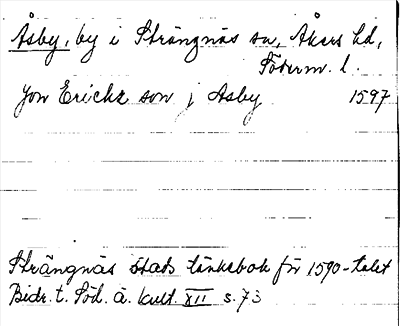 Åsby, by i Strängnäs sn, Åkers hd,
Söderm. l.
Jon Ericks son j Asby 1597
Strängnäs stads tänkebok för 1590-talet
Bidr. t. Söd. ä. kult. XII s. 73